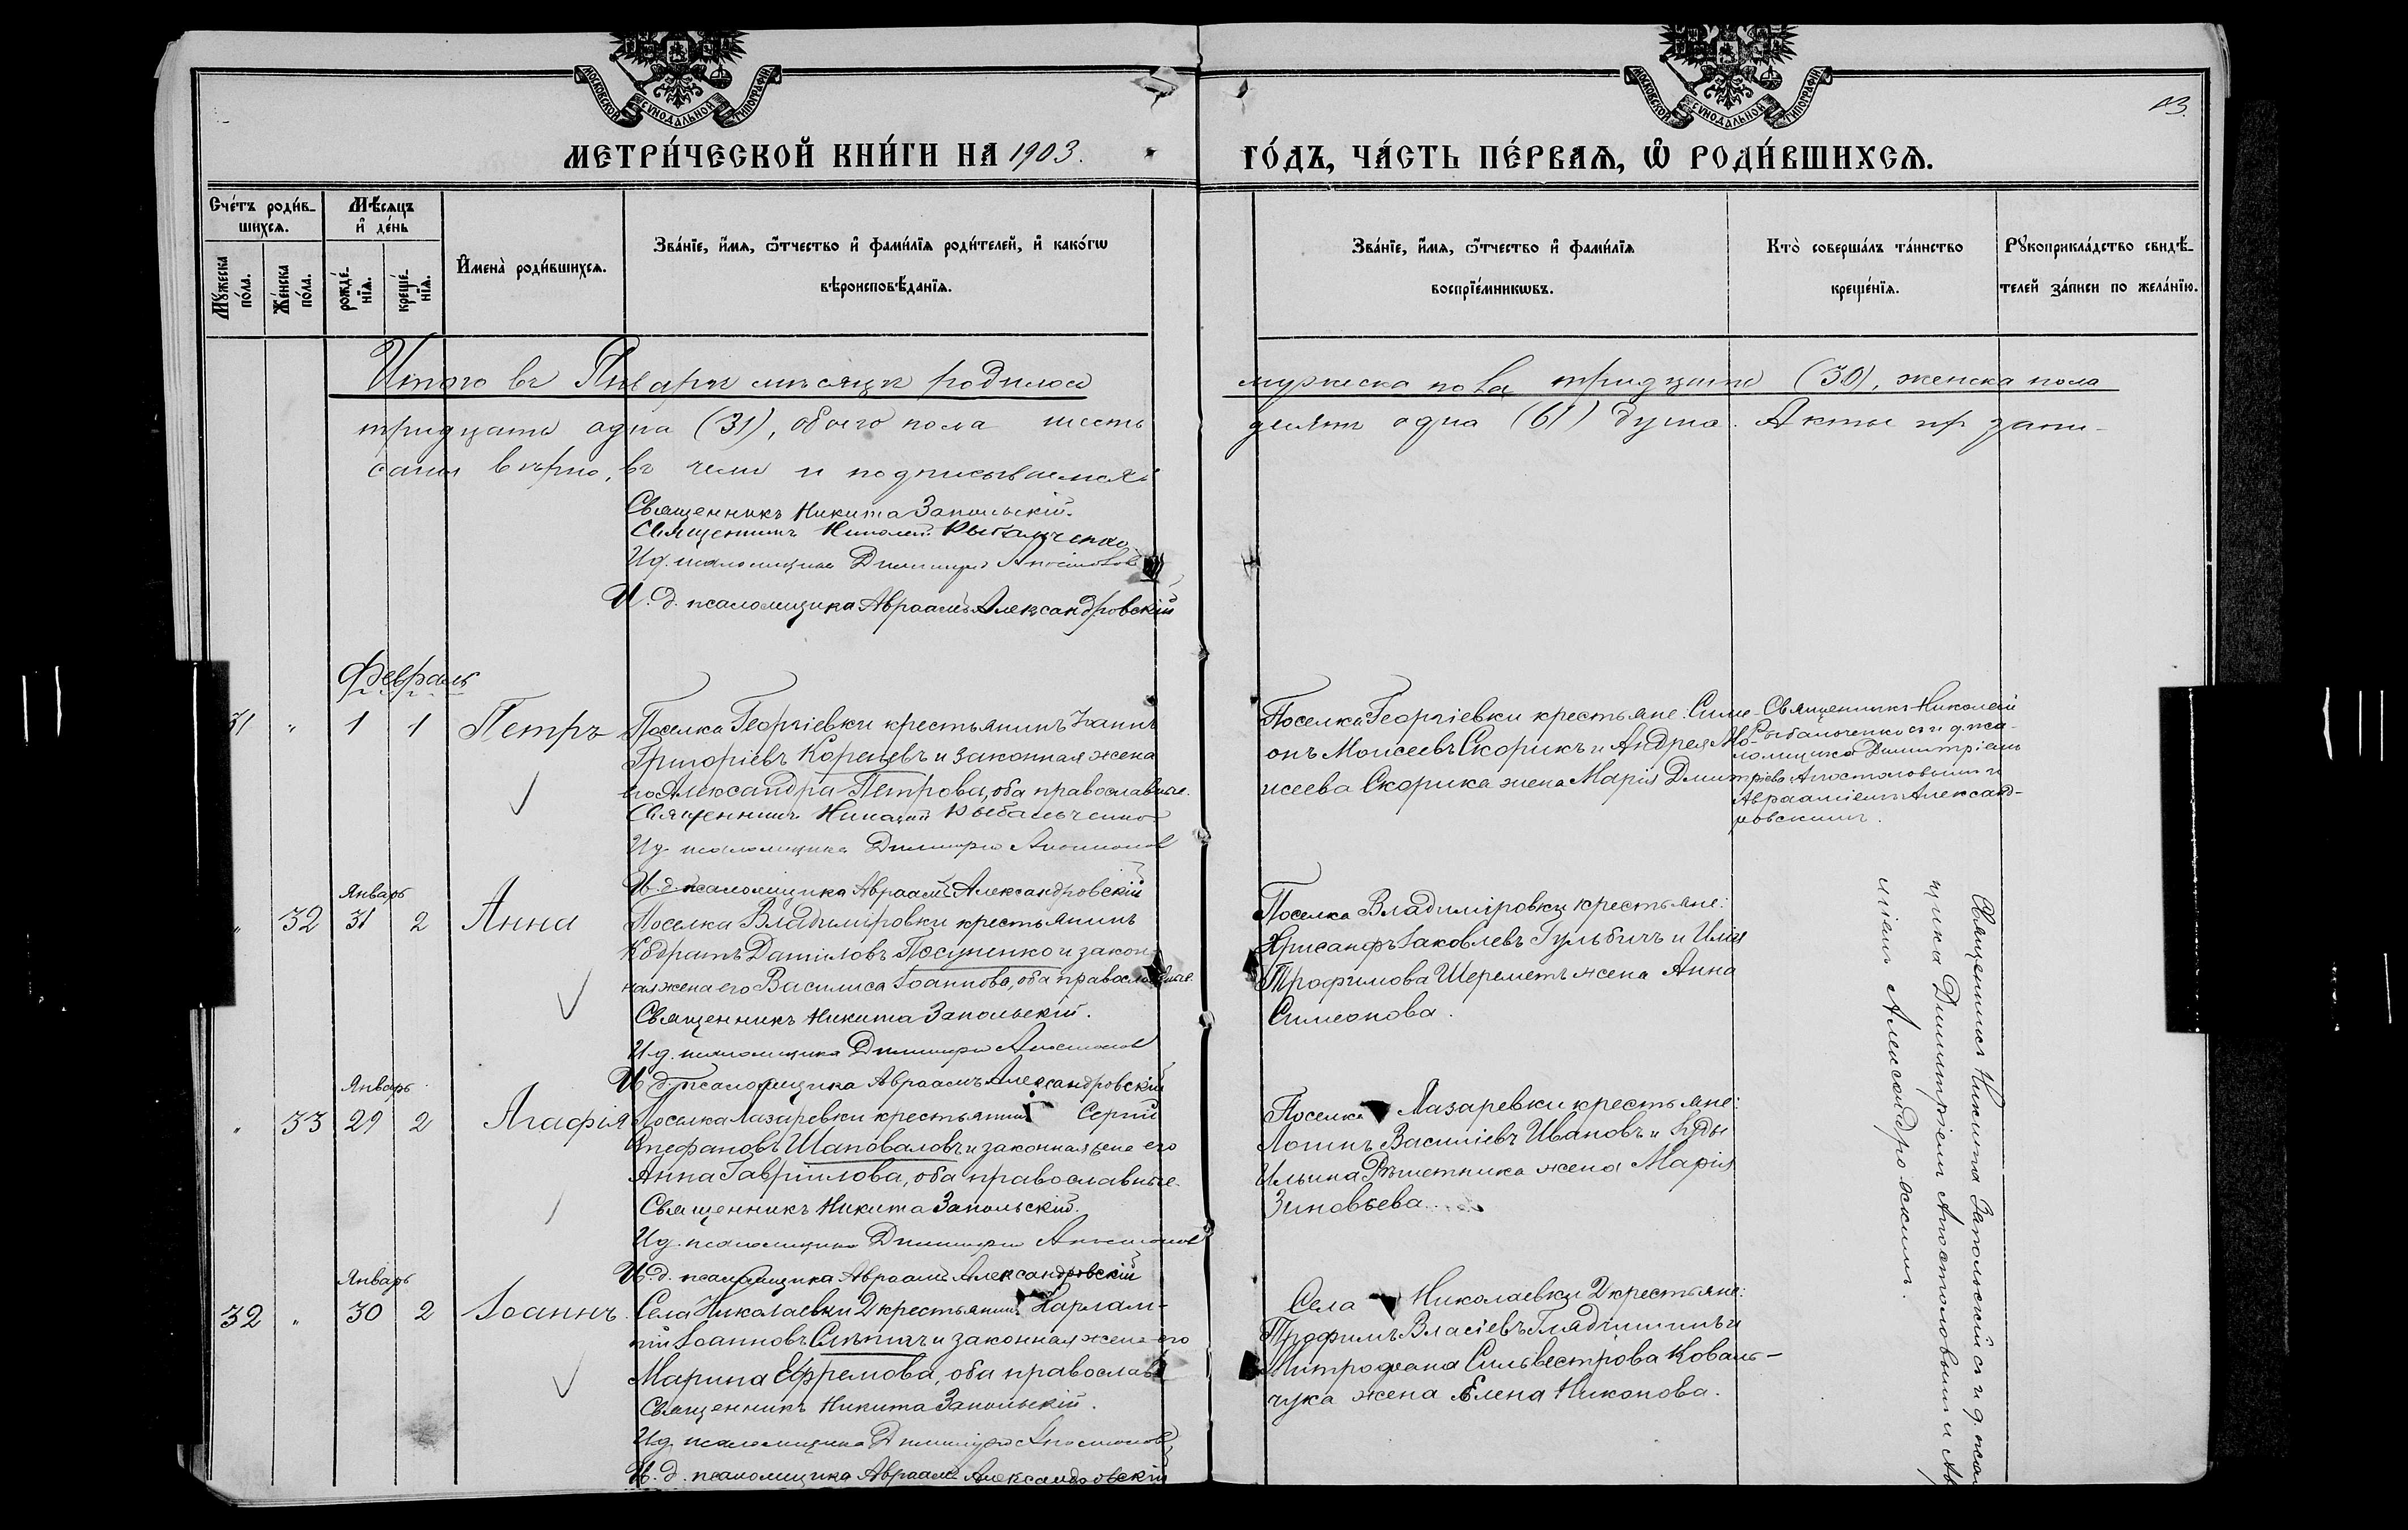 МОСКОВСКОЙ СѴНОДАЛЬНОЙ ТИПОГРАФІИ
МОСКОВСКОЙ СѴНОДАЛЬНОЙ ТИПОГРАФІИ
13.
МЕТРИ́ЧЕСКОЙ КНИ́ГИ НА 1903.
ГО́ДЪ, ЧА́СТЬ ПЕ́РВАѦ, Ѡ҆ РОДИ́ВШИХСѦ.
Сче́тъ роди́в-
шихсѧ.
Мꙋ́жеска по́ла.
Же́нска по́ла.
Мѣ́сѧцъ
и҆ де́нь
рожде́-
нїѧ.
креще́-
нїѧ.
И҆мена̀ роди́вшихсѧ.
Зва́нїе, и҆́мѧ, ѻ҆́тчество и҆ фами́лїѧ роди́телей, и҆ како́гѡ
вѣроисповѣ́данїѧ.
Зва́нїе, и҆́мѧ, ѻ҆́тчество и҆ фами́лїѧ
воспрїе́мникѡвъ.
Кто̀ соверша́лъ та́инство
креще́нїѧ.
Рꙋкоприкла́дство свидѣ́-
телей за́писи по жела́нїю.
Итого въ Январѣ мѣсяцѣ родилось
мужеска пола тридцать (30), женска пола
тридцать одна (31), обоего пола шесть
десятъ одна (61) душа. Акты пр запи-
саны вѣрно, въ чемъ и подписываемся:
Священникъ Никита Запольскій.
Священникъ Николай Рыбальченко
И д. псаломщика Димитрій Апостоловъ
И. д. псаломщика Авраамъ Александровскій
Февраль
31 " 1 1 Петръ
Поселка Георгіевки крестьянинъ Іоаннъ
Григоріевъ Кореневъ и законная жена
его Александра Петрова, оба православные.
Священникъ Николай Рыбальченко
И д. псаломщика Димитрій Апостоловъ
И. д. псаломщика Авраамъ Александровскій
Поселка Георгіевки крестьяне: Симе-
онъ Моисеевъ Скорикъ и Андрея Мо-
исеева Скорика жена Марія Дмитріева
Священникъ Николай
Рыбальченко съ и д. пса-
ломщика Димитріемъ
Апостоловымъ и
Авраамiемъ Александ-
ровскимъ.
Январь
" 32 31 2 Анна
Поселка Владиміровки крестьянинъ
Кодратъ Даниловъ Посуненко и закон-
ная жена его Василиса Іоаннова, оба православные.
Священникъ Никита Запольскій.
И д. псаломщика Димитрій Апостоловъ
И д. псаломщика Авраамъ Александровскій
Поселка Владиміровки крестьяне:
Хрисанфъ Іаковлевъ Гульбичъ и Иліи
Трофимова Шереметъ жена Анна
Симеонова.
Январь
" 33 29 2 Агафія
Поселка Лазаревки крестьянинъ Сергій
Стефановъ Шаповаловъ и законная жена его
Анна Гавріилова, оба православные.
Священникъ Никита Запольскій.
И д. псаломщика Димитрій Апостоловъ
И. д. псаломщика Авраамъ Александровскій
Поселка Лазаревки крестьяне:
Логинъ Василіевъ Ивановъ и
Ильина Рѣшетника жена Марія
Зиновьева.
Январь
32 " 30 2 Іоаннъ
Села Николаевки 2 крестьянинъ Харлам-
пій Іоанновъ и законная жена его
Марина Ефремова, оба православ
Священникъ Никита Запольскій.
И д. псаломщика Димитрій Апостоловъ
И. д. псаломщика Авраамъ Александровскій
Села Николаевки 2 крестьяне:
Трофимъ Власіевъ и
Митрофана Сильвестрова Коваль-
чука жена Елена Никонова.
Священникъ Никита Запольскій съ и д. псалом
щика Димитріемъ Апостоловымъ и Авра
аміемъ Александровскимъ.